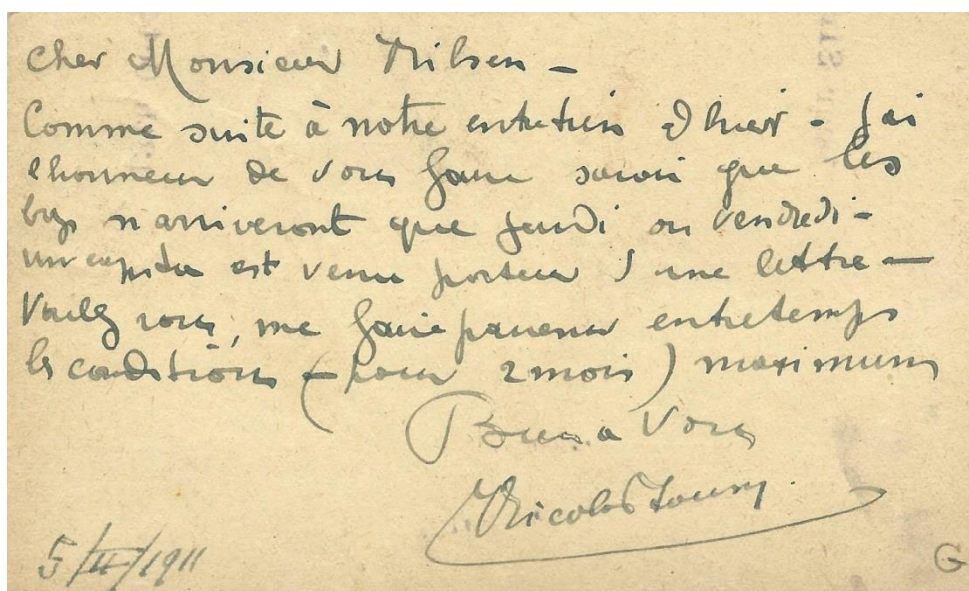 Cher Monsieur Nilsen -
Comme suite à notre entretien d hier - J ai
l honneur de vous faire savoir que les
n arriveront que Jeudi ou Vendredi -
un est venu porteur d une lettre -
Voulez vous, me faire parvenir entretemps
les conditions - (pour 2 mois) maximum
Bien a Vous
Nicolas
5/II/1911
G